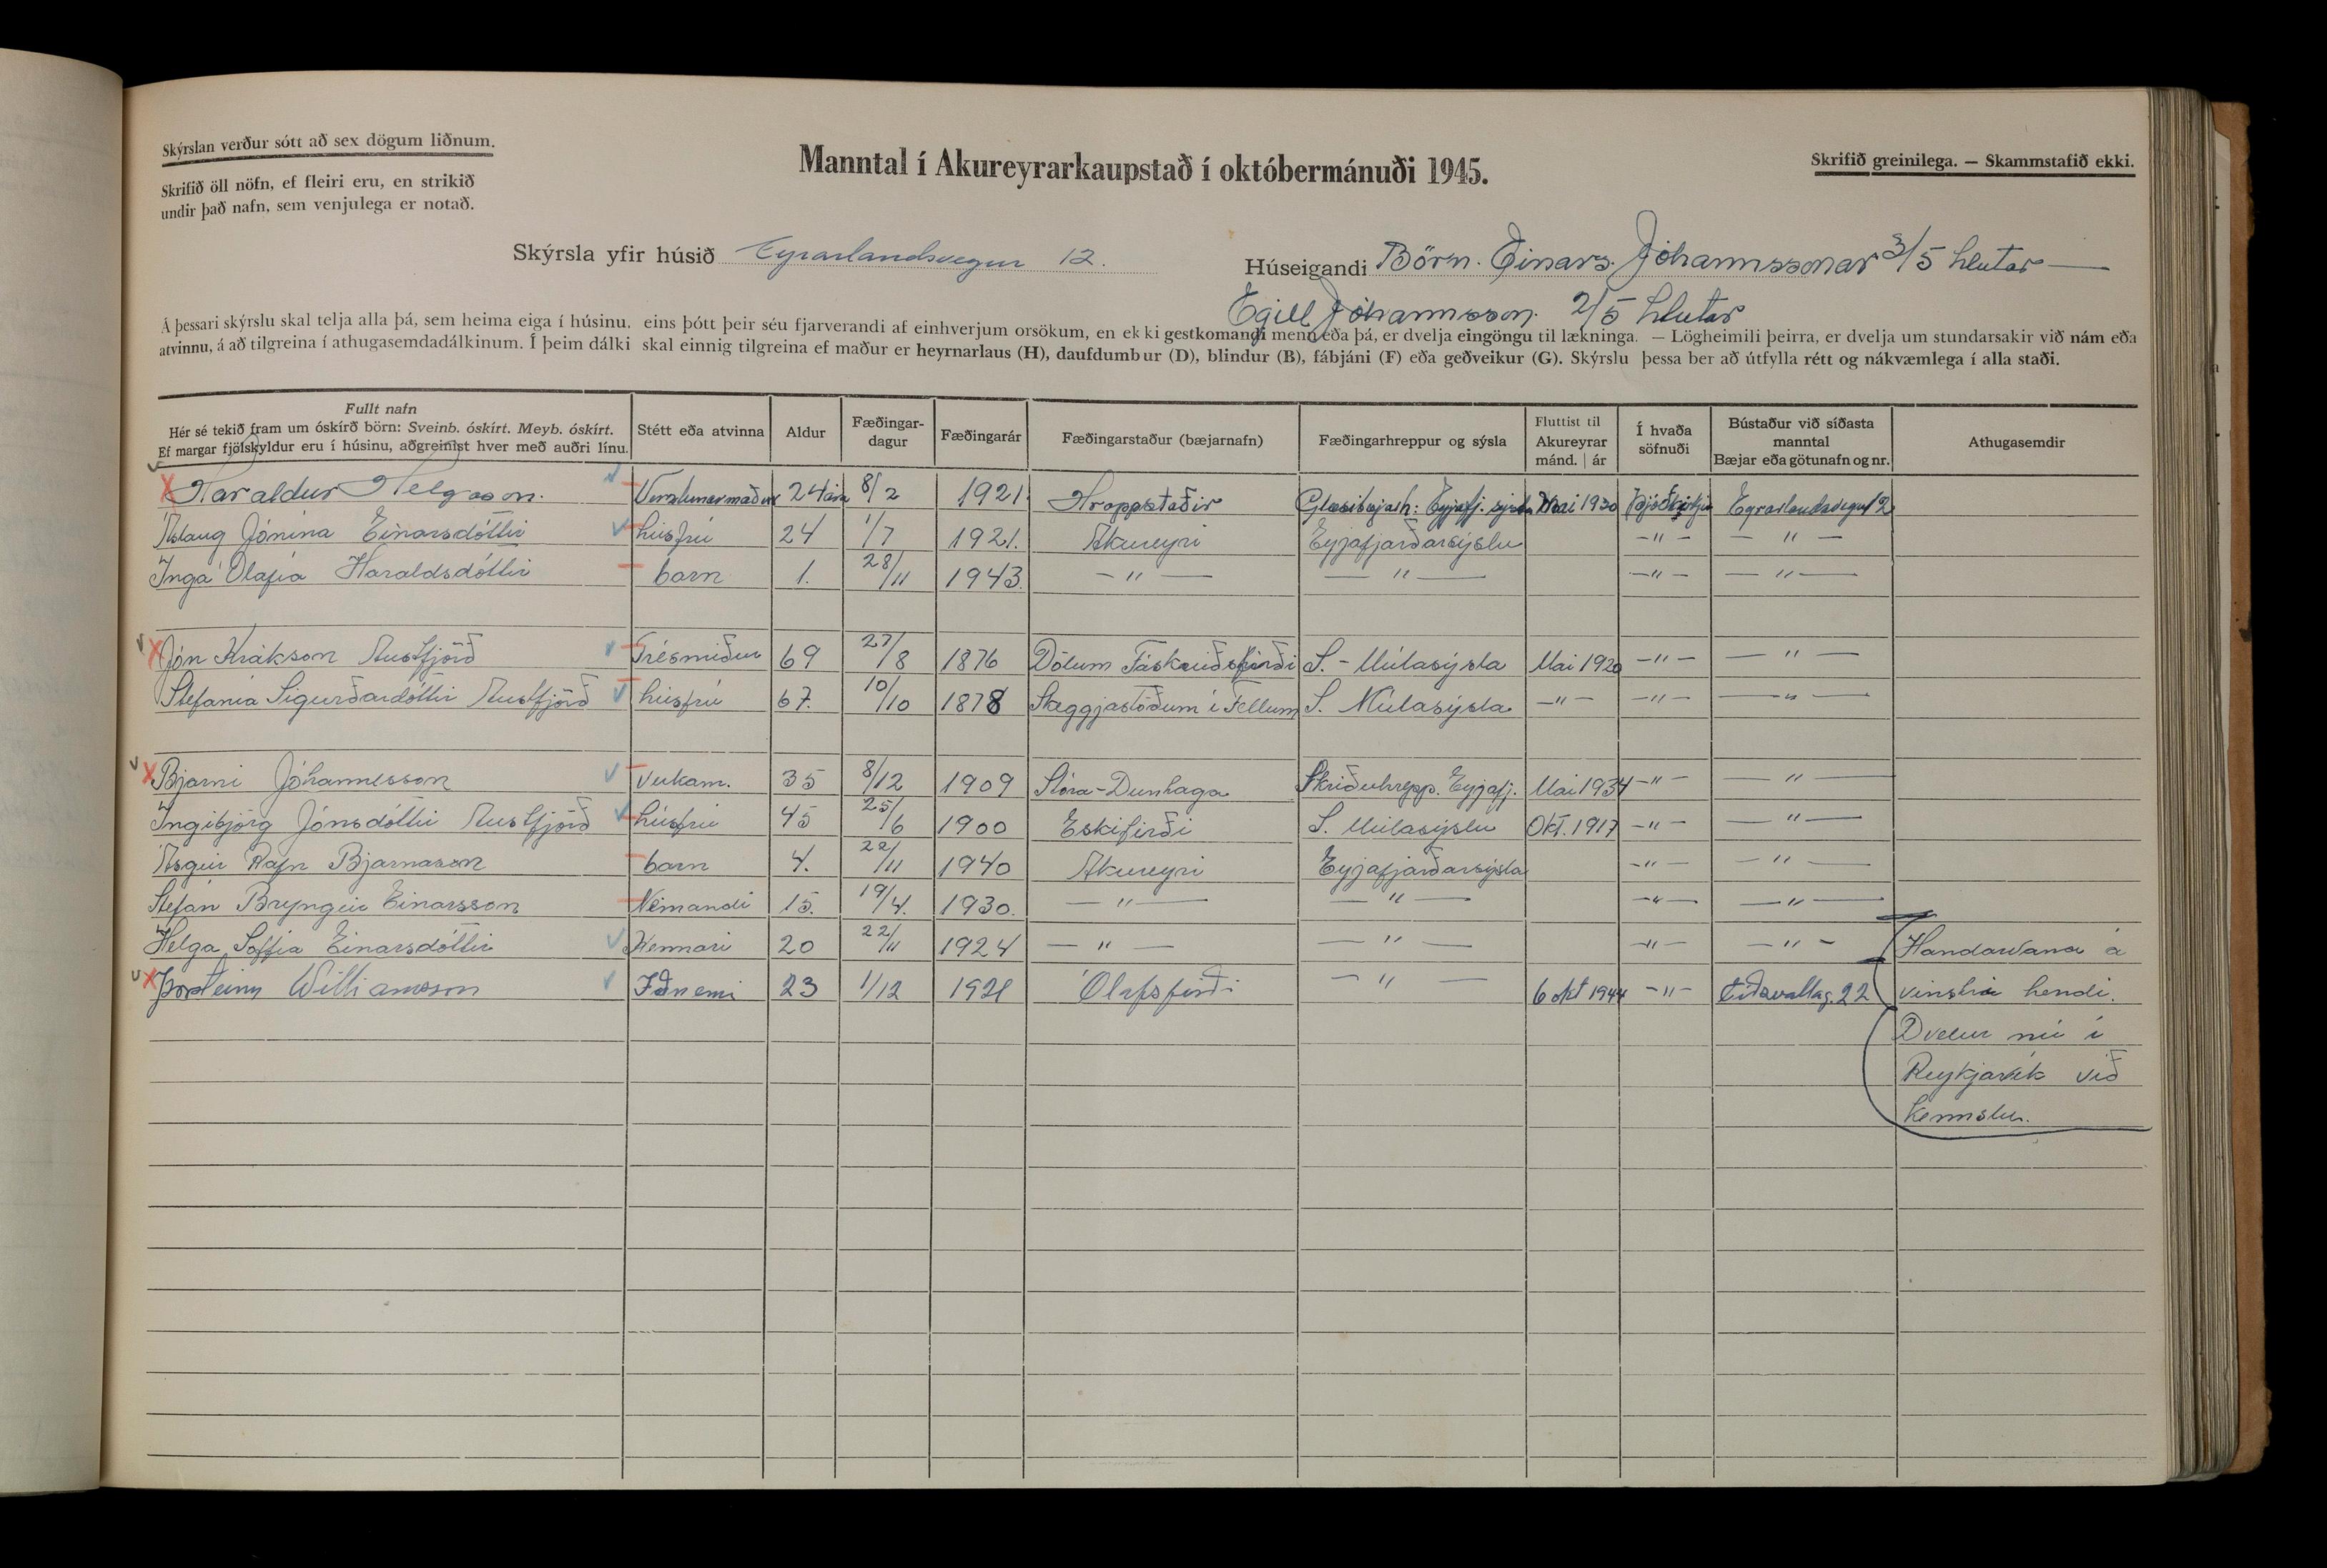 Skýrslan verður sótt að sex dögum liðnum.
Skrifið öll nöfn, ef fleiri eru, en strikið
undir það nafn, sem venjulega er notað.
Manntal í Akureyrarkaupstað í októbermánuði 1945.
Skrifið greinilega. — Skammstafið ekki.
Skýrsla yfir húsið Eyrarlandsvegur 12.
Húseigandi Börn Einars Jóhannssonar 3/5 hlutar
Egill Jóhannsson. 2/5 hlutar
Á þessari skýrslu skal telja alla þá, sem heima eiga í húsinu, eins þótt þeir séu fjarverandi af einhverjum orsökum, en ekki gestkomandi menn eða þá, er dvelja eingöngu til lækninga. — Lögheimili þeirra, er dvelja um stundarsakir við nám eða
atvinnu, á að tilgreina í athugasemdadálkinum. Í þeim dálki skal einnig tilgreina ef maður er heyrnarlaus (H), daufdumbur (D), blindur (B), fábjáni (F) eða geðveikur (G). Skýrslu þessa ber að útfylla rétt og nákvæmlega í alla staði.
Fullt nafn
Hér sé tekið fram um óskírð börn: Sveinb. óskírt. Meyb. óskírt.
Ef margar fjölskyldur eru í húsinu, aðgreinist hver með auðri línu.
Stétt eða atvinna
Aldur
Fæðingar-
dagur
Fæðingarár
Fæðingarstaður (bæjarnafn)
Fæðingarhreppur og sýsla
Fluttist til
Akureyrar
mánd. | ár
Í hvaða
söfnuði
Bústaður við síðasta
manntal
Bæjar eða götunafn og nr.
Athugasemdir
Haraldur Helgason. Verslunarmaður 24 ára 8/2 1921. Hroppstaðir Glæsibæjarh: Eyjafj. sýsla Mai 1930 Þjóðkirkju Eyrarlandsvegur 12
Áslaug Jónína Einarsdóttir húsfrú 24 1/7 1921. Akureyri Eyjafjarðarsýslu — " — — " —
Inga Ólafía Haraldsdóttir barn 1. 28/11 1943. — " — — " — — " — — " —
Jón Krákson Austfjörð Trésmiður 69 27/8 1876 Dölum Fáskrúðsfirði S. - Múlasýsla Mai 1920 — " — — " —
Stefanía Sigurðardóttir Austfjörð húsfrú 67. 10/10 1878 Skeggjastöðum í Fellum S. Múlasýsla — " — — " — — " —
Bjarni Jóhannesson verkam. 35 8/12 1909 Stóra-Dunhaga Skriðuhrepp. Eyjafj. Mai 1934 — " — — " —
Ingibjörg Jónsdóttir Austfjörð húsfrú 45 25/6 1900 Eskifirði S. Múlasýslu Okt. 1917 — " — — " —
Ásgeir Rafn Bjarnason barn 4. 22/11 1940 Akureyri Eyjafjarðarsýsla — " — — " —
Stefán Bryngeir Einarsson Nemandi 15. 19/4. 1930. — " — — " — — " — — " —
Helga Soffía Einarsdóttir Kennari 20 22/11 1924 — " — — " — — " — — " — Handarvana á
Þorsteinn Williamsson Iðnemi 23 1/12 1921 Ólafsfirði — " — 6 okt 1944 — " — Eiðsvallag. 22 vinstri hendi.
Dvelur nú í
Reykjavík við
kennslu.